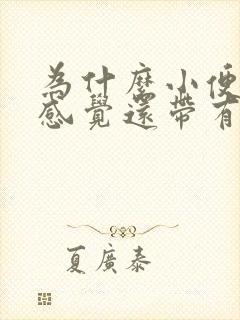 為什麼小便
感覺還帶有
夏廣泰